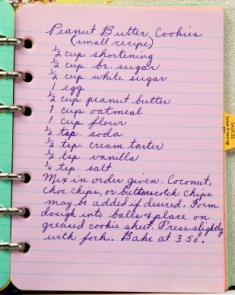 Peanut Butter Cookies
(small recipe)
½ cup shortening
½ cup br. sugar
½ cup white sugar
1 egg
½ cup peanut butter
1 cup oatmeal
1 cup flour
½ tsp. soda
½ tsp. cream tarter
½ tsp vanilla
¼ tsp salt
Mix in order given. Coconut,
choc chips, or butterscotch chips
may be added if desired. Form
dough into balls & place on
greased cookie sheet. Press slightly
with fork. Bake at 350°.